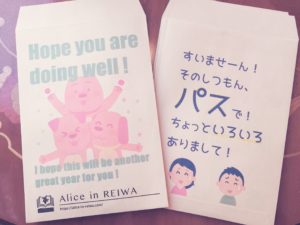 Hope you are
doing well !
I hope this will be another
great year for you !
Alice in REIWA
https://alice-in-reiwa.com/
すいませーん！
そのしつもん、
パスで！
ちょっといろいろ
ありまして！